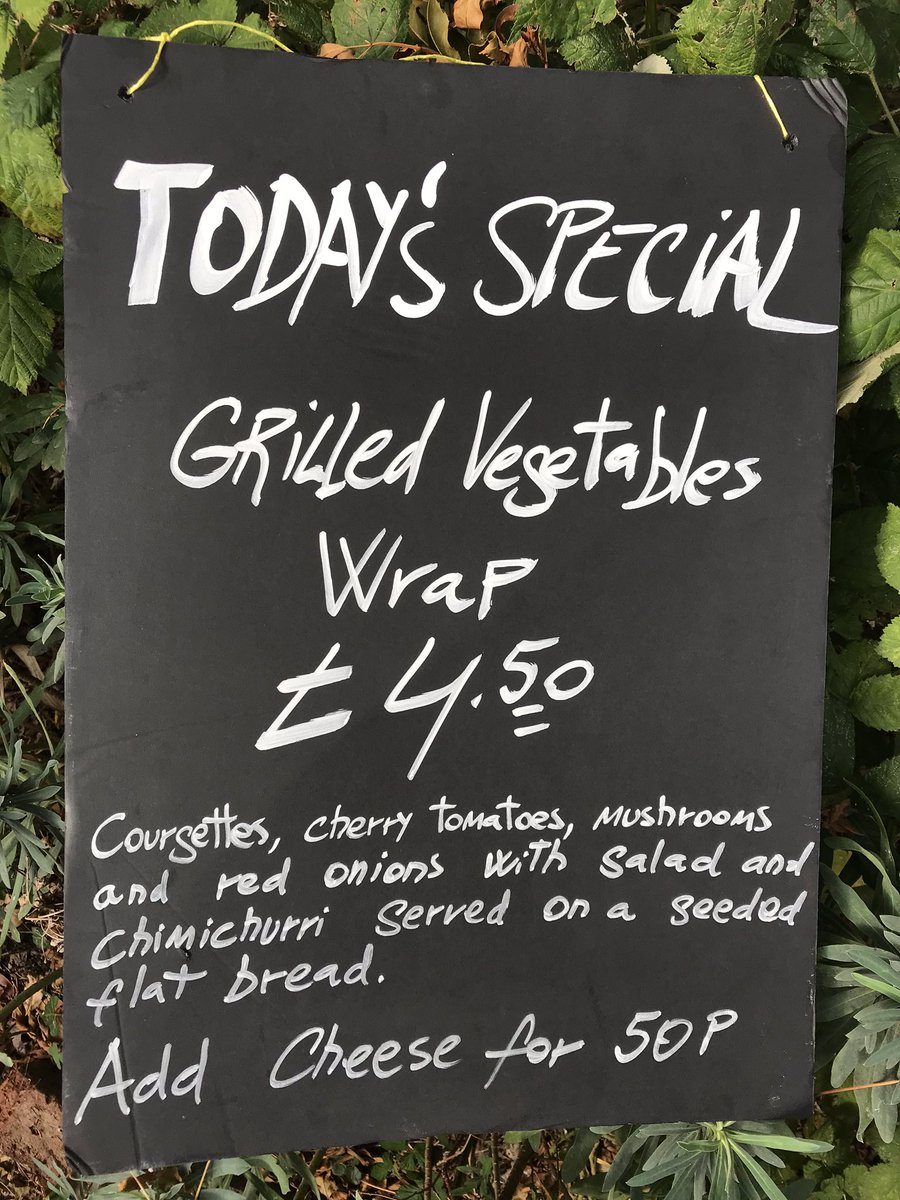 TODAY's SPECiAL
GRilled Vegetables
Wrap
£4.50
Courgettes, cherry tomatoes, mushrooms
and red onions with salad and
Chimichurri served on a seeded
flat bread.
Add Cheese for 50P